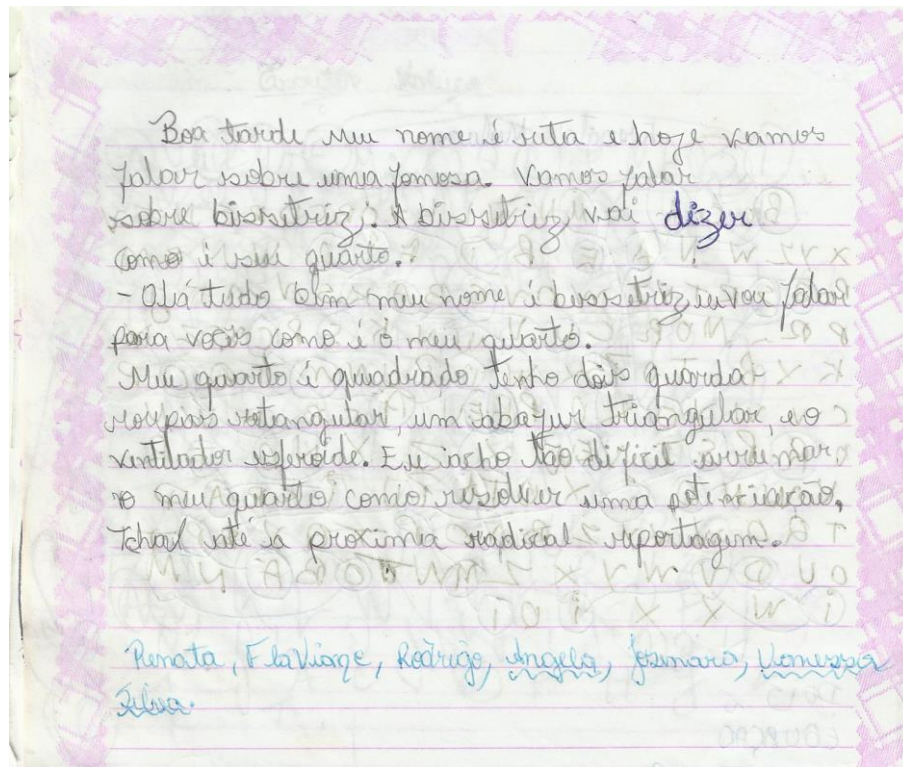 Boa tarde meu nome é reta e hoje vamos
falar sobre uma famosa. Vamos falar
sobre bissetriz. A bissetriz vai dizer
como é seu quarto.
- Olá tudo bem meu nome é bissetriz, eu vou falar
para vocês como é o meu quarto.
Meu quarto é quadrado tenho dois guarda
roupas retangular, um abazur triangular, e o
ventilador esferoide. Eu acho tão dificil arrumar
o meu quarto como resolver uma potenciação.
Tchal até a proxima radical reportagem.
Renata, Flaviane, Rodrigo, Angela, Josmara, Vanessa
Silva.